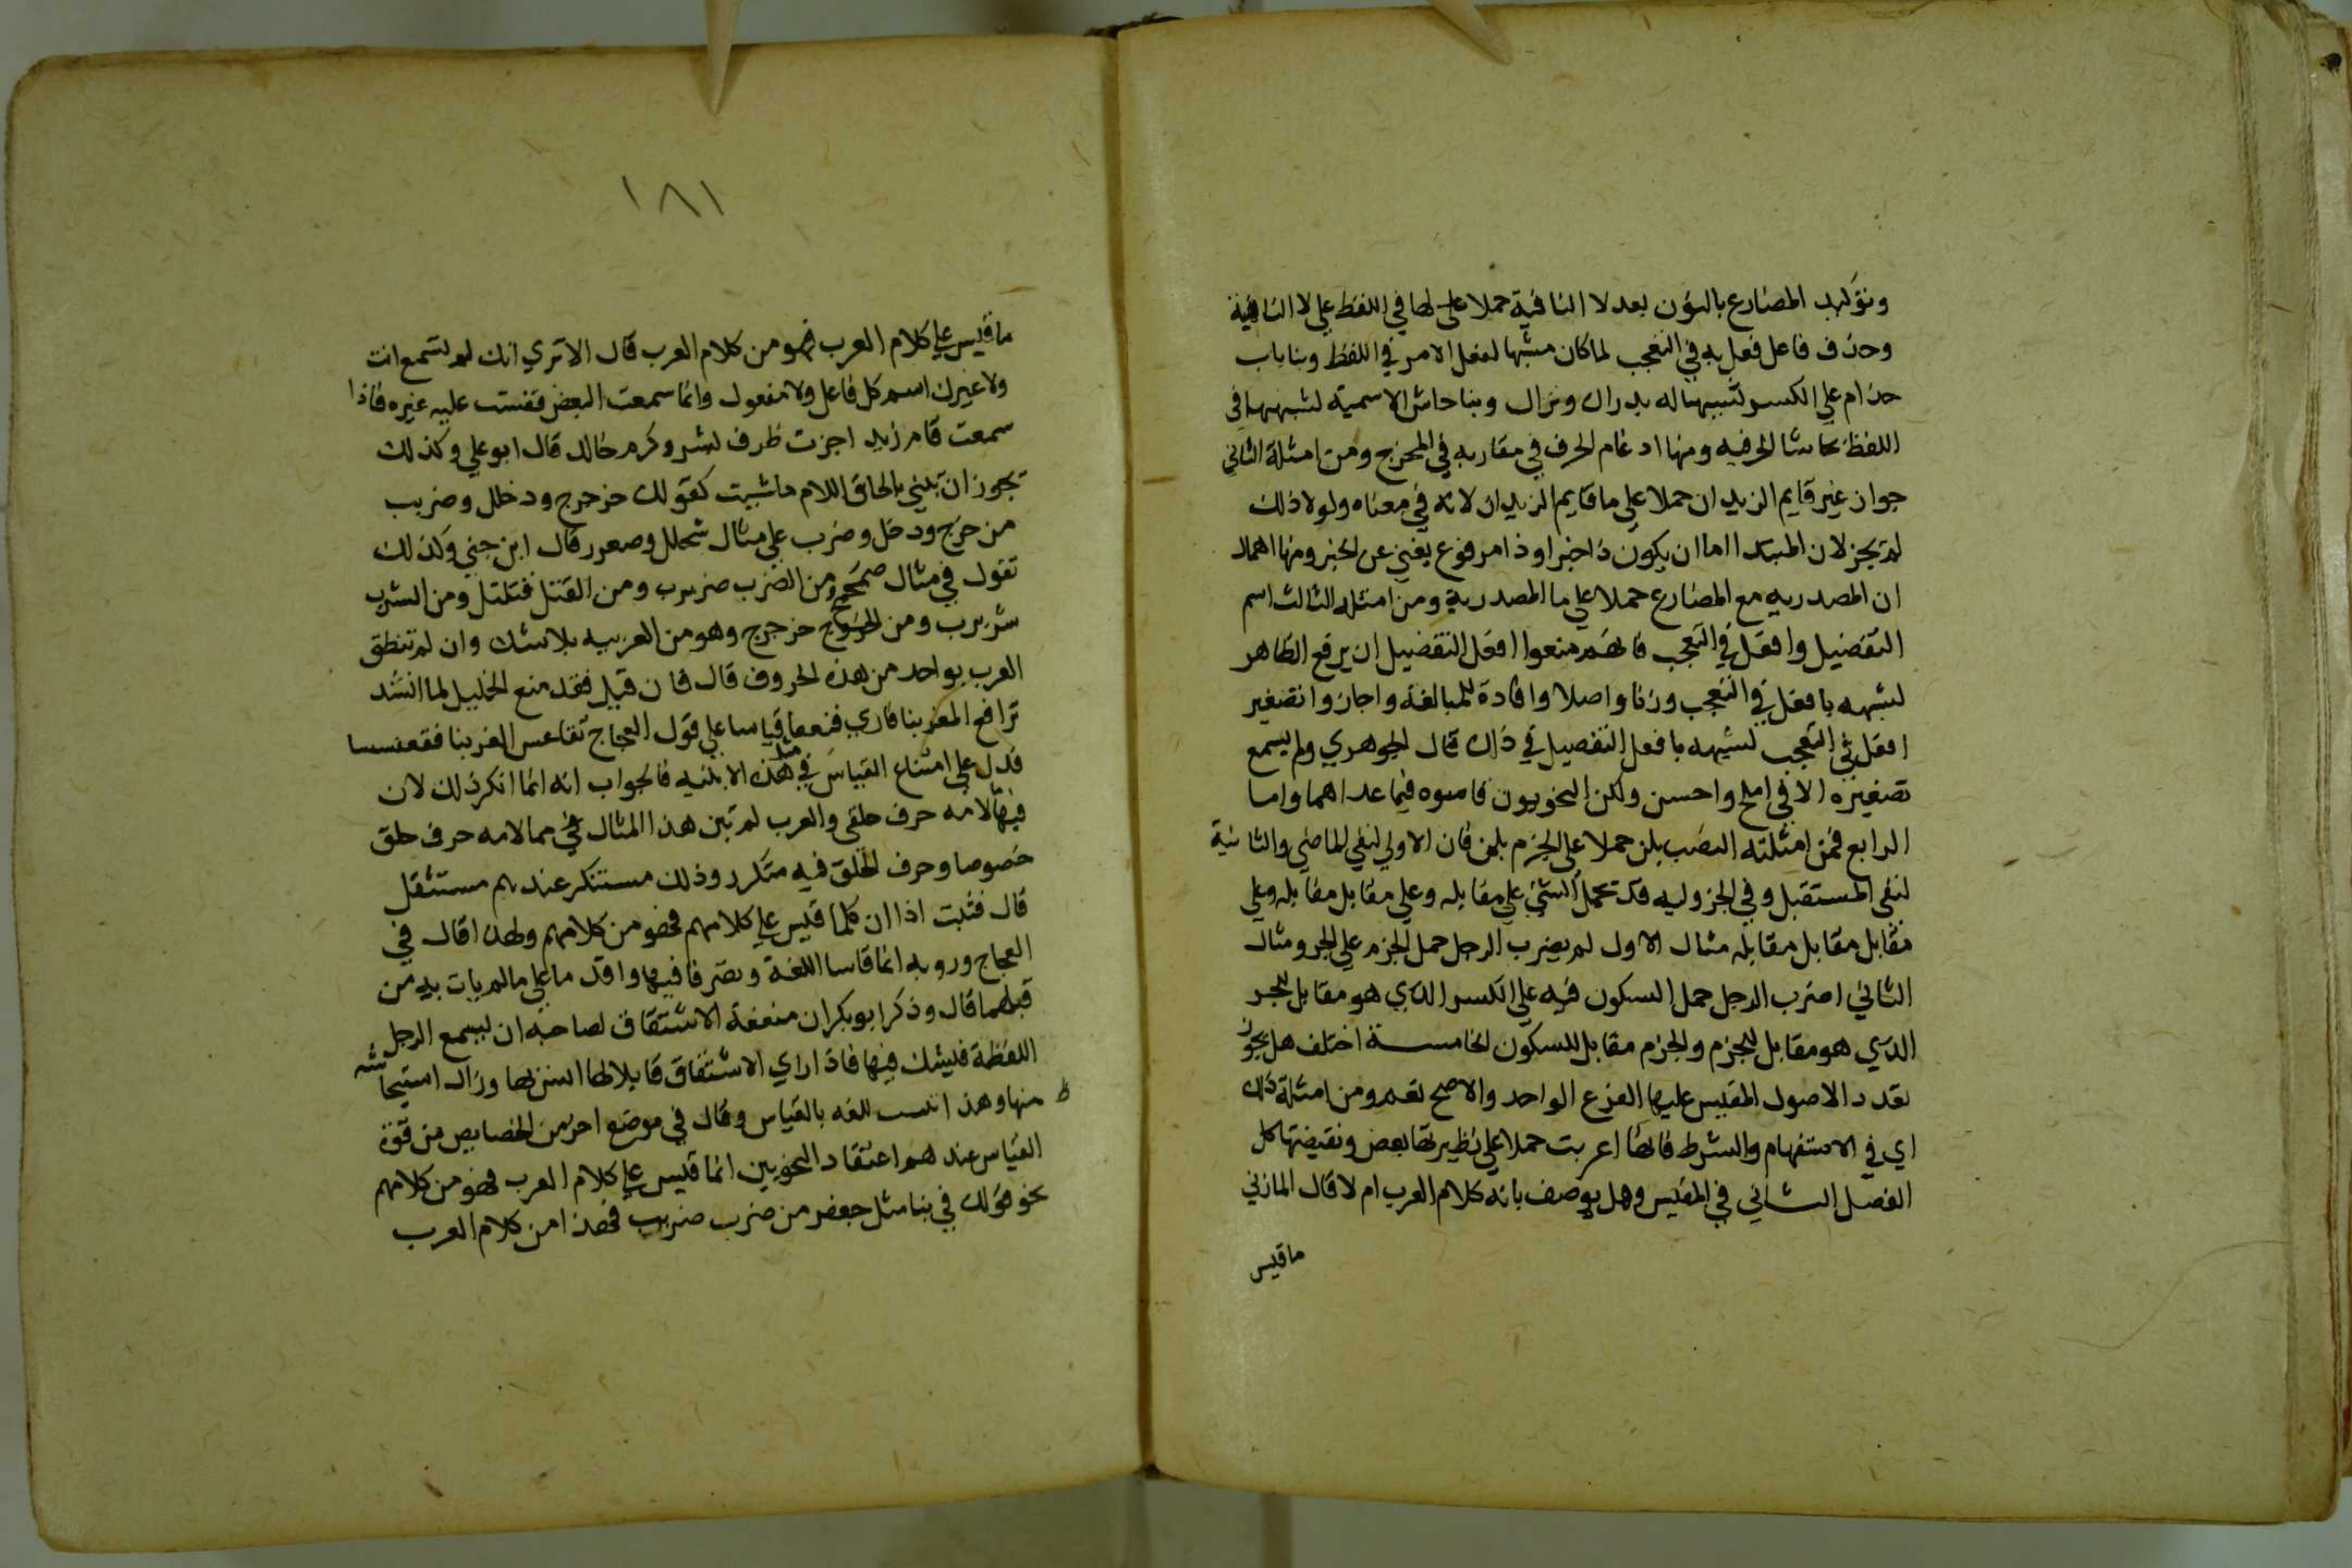 وتوكيد المضارع بالنون بعد لا النافية حملا على لها في اللفظ علي لا الناهية
وحذف فاعل فعل به في التعجب لما كان مشبها لفعل الامر في اللفظ وبنا باب
حذام علي الكسر تشبيها له بدراك ونزال وبنا حاش الاسمية لشبهها في
اللفظ بحاشا الحرفيه ومنها ادغام الحرف في مقاربه في المخرج ومن امثلة الثاني
جواز غير قايم الزيدان حملا علي ما قايم الزيدان لانه في معناه ولولا ذلك
لم يجز لان المبتدا اما ان يكون ذا خبر او ذا مرفوع يغني عن الخبر ومنها اهمال
ان المصدريه مع المضارع حملا علي ما المصدرية ومن امثلة الثالث اسم
التفضيل وافعل في التعجب فانهم منعوا افعل التفضيل ان يرفع الظاهر
لشبهه بافعل في التعجب وزنا واصلا وافادة للمبالغة واجازوا تصغير
افعل في التعجب لشبهه بافعل التفضيل في ذلك قال الجوهري ولم يسمع
تصغيره الا في املح واحسن ولكن النحويون قاسوه فيما عداهما واما
الرابع فمن امثلته النصب بلن حملا على الجزم بلم فان الاولي لنفي الماضي والثانية
لنفي المستقبل وفي الجزوليه قد تحمل الشي علي مقابله وعلي مقابل مقابله وعلي
مقابل مقابل مقابله مثال الاول لم يضرب الرجل حمل الجزم علي الجر ومثال
الثاني اضرب الرجل حمل السكون فيه علي الكسر الذي هو مقابل للجر
الذي هو مقابل للجزم والجزم مقابل للسكون الخامسة اختلف هل يجوز
تعدد الاصول المقيس عليها الفرع الواحد والاصح نعم ومن امثلة ذلك
اي في الاستفهام والشرط فانها اعربت حملا علي نظيرتها بعض ونقيضتها كل
الفصل الثاني في المقيس وهل يوصف بانه كلام العرب ام لا قال المازني
ما قيس
١٨١
ما قيس علي كلام العرب فهو من كلام العرب قال الا تري انك لم تسمع انت
ولا غيرك اسم كل فاعل ولا مفعول وانما سمعت البعض فقست عليه غيره فاذا
سمعت قام زيد اجزت ظرف بشر وكرم خالد قال ابو علي وكذلك
تجوز ان تبني بالحاق اللام ما شيت كقولك خرجج ودخلل وضربب
من خرج ودخل وضرب علي مثال شملل وصعرر قال ابن جني وكذلك
تقول في مثال صمحمح من الضرب ضربرب ومن القتل قتلتل ومن الشرب
شربرب ومن الخروج خرجرج وهو من العربيه بلا شك وان لم تنطق
العرب بواحد من هذه الحروف قال فان قيل فقد منع الخليل لما انشد
ترافع العز بنا فارفنععا قياسا علي قول العجاج تقاعس العز بنا فاقعنسسا
فدل على امتناع القياس في مثل هذه الابنيه فالجواب انه انما انكر ذلك لان
فيما لامه حرف حلقي والعرب لم تبن هذا المثال في مما لامه حرف حلق
خصوصا وحرف الحلق فيه متكرر وذلك مستنكر عندهم مستثقل
قال فثبت اذا ان كلما قيس علي كلامهم فهو من كلامهم ولهذا قال في
العجاج وروبه انما قاسا اللغة وتصرفا فيها واقدما علي ما لم يات به من
قبلهما قال وذكر ابو بكر ان منفعة الاشتقاق لصاحبه ان يسمع الرجل
اللفظة فيشك فيها فاذا راي الاشتقاق قابلا لها انس بها وزال استيحاشه
منها وهذا اثبت للغه بالقياس وقال في موضع اخر من الخصايص من قوة
القياس عندهم اعتقاد النحويين انما قيس علي كلام العرب فهو من كلامهم
نحو قولك في بنا مثل جعفر من ضرب ضربب فهذا من كلام العرب